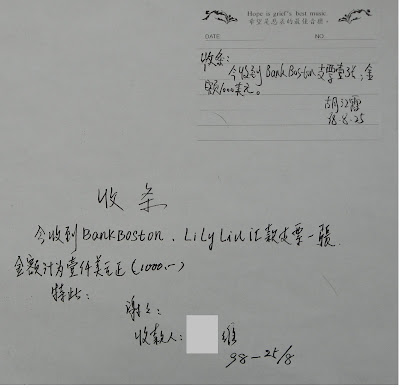 Hope is grief's best music.
希望是悲哀的最佳音樂。
DATE NO.
收条:
今收到BankBoston支票壹张,金
额1000美元。
8.25
收 条
今收到BankBoston、Lily Liu汇款支票一張
金额计为壹仟美元正(1000.—)
特此:
谢谢:
收款人: 维
98—25/8